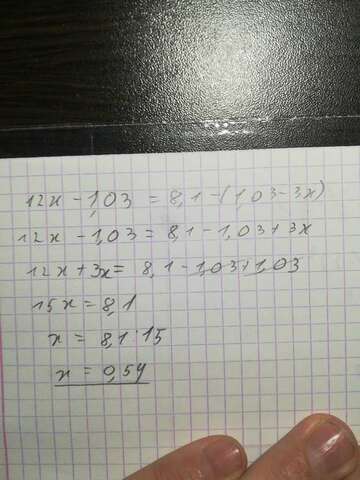 12x - 1,03 = 8,1 - (1,03 - 3x)
12x - 1,03 = 8,1 - 1,03 + 3x
12x + 3x = 8,1 - 1,03 + 1,03
15x = 8,1
x = 8,1 : 15
x = 0,54